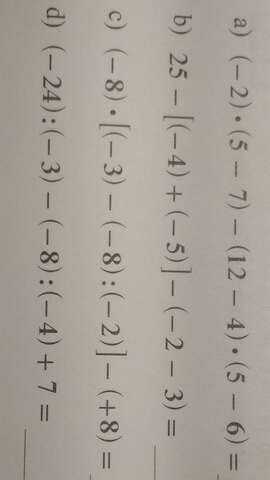 a) (−2)•(5 − 7) − (12 − 4)•(5 − 6) =
b) 25 − [(−4) + (−5)] − (−2 − 3) =
c) (−8)•[(−3) − (−8):(−2)] − (+8) =
d) (−24):(−3) − (−8):(−4) + 7 =